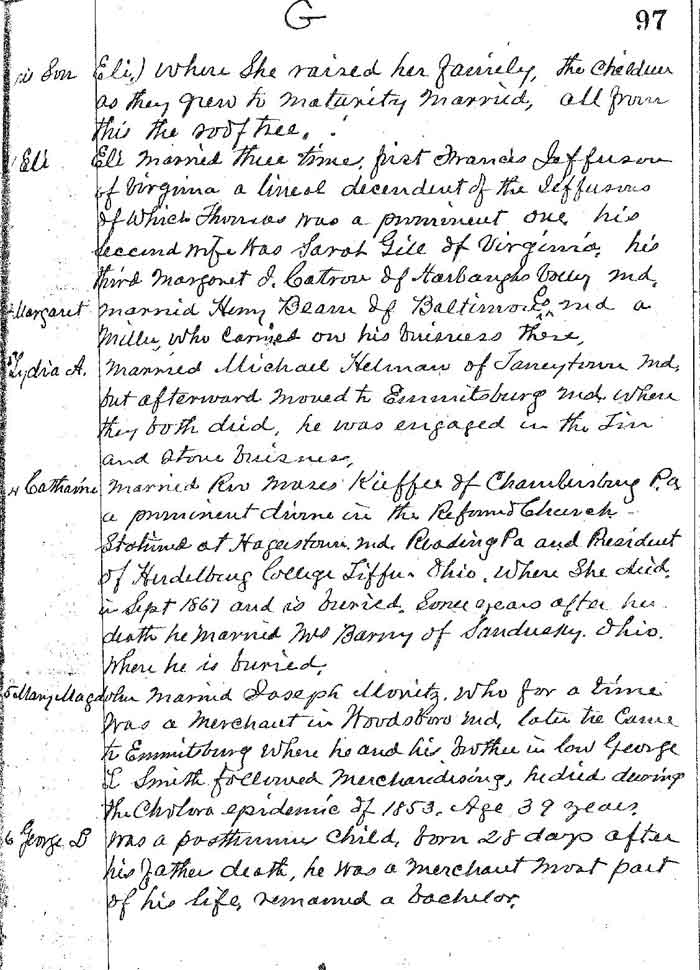 G
97
his Son Eli,) where She raised her family, the children
as they grew to maturity married, all from
this the rooftree.
1 Eli Eli married three time, first Francis Jefferson
of Virginia a lineal decendent of the Jeffersons
of Which Thomas was a prominent one, his
second wife Was Sarah Gill of Virginia, his
third Margaret I. Catrow of Harbaughs Valley Md.
2 Margaret married Henry Beam of Baltimore Co Md a
Miller, Who carried on his buisness there,
3 Lydia A. Married Michael Helman of Taneytown Md,
but afterward moved to Emmitsburg Md. where
they both died, he was engaged in the Tin
and Stove buisness,
4 Catharine Married Rev Moses Kieffer of Chambersburg P.a
a prominent divine in the Reformed Church
Stationed at Hagerstown. Md. Reading Pa and President
of Heidelburg College Tiffin Ohio. Where She died,
in Sept 1867 and is buried. Some years after her
death he Married Mrs Barny of Sandusky. Ohio.
Where he is buried.
5 Mary Magdalen Married Joseph Moritz. Who for a time
Was a Merchant in Woodsboro Md, later he Came
to Emmitsburg Where he and his brother in low George
L Smith followed Merchandising, he died dewing
the Cholora epidemic of 1853. Age 39 years.
6 George L Was a posthumus Child, born 28 days after
his father death, he Was a Merchant Most part
of his life, remained a bachelor.